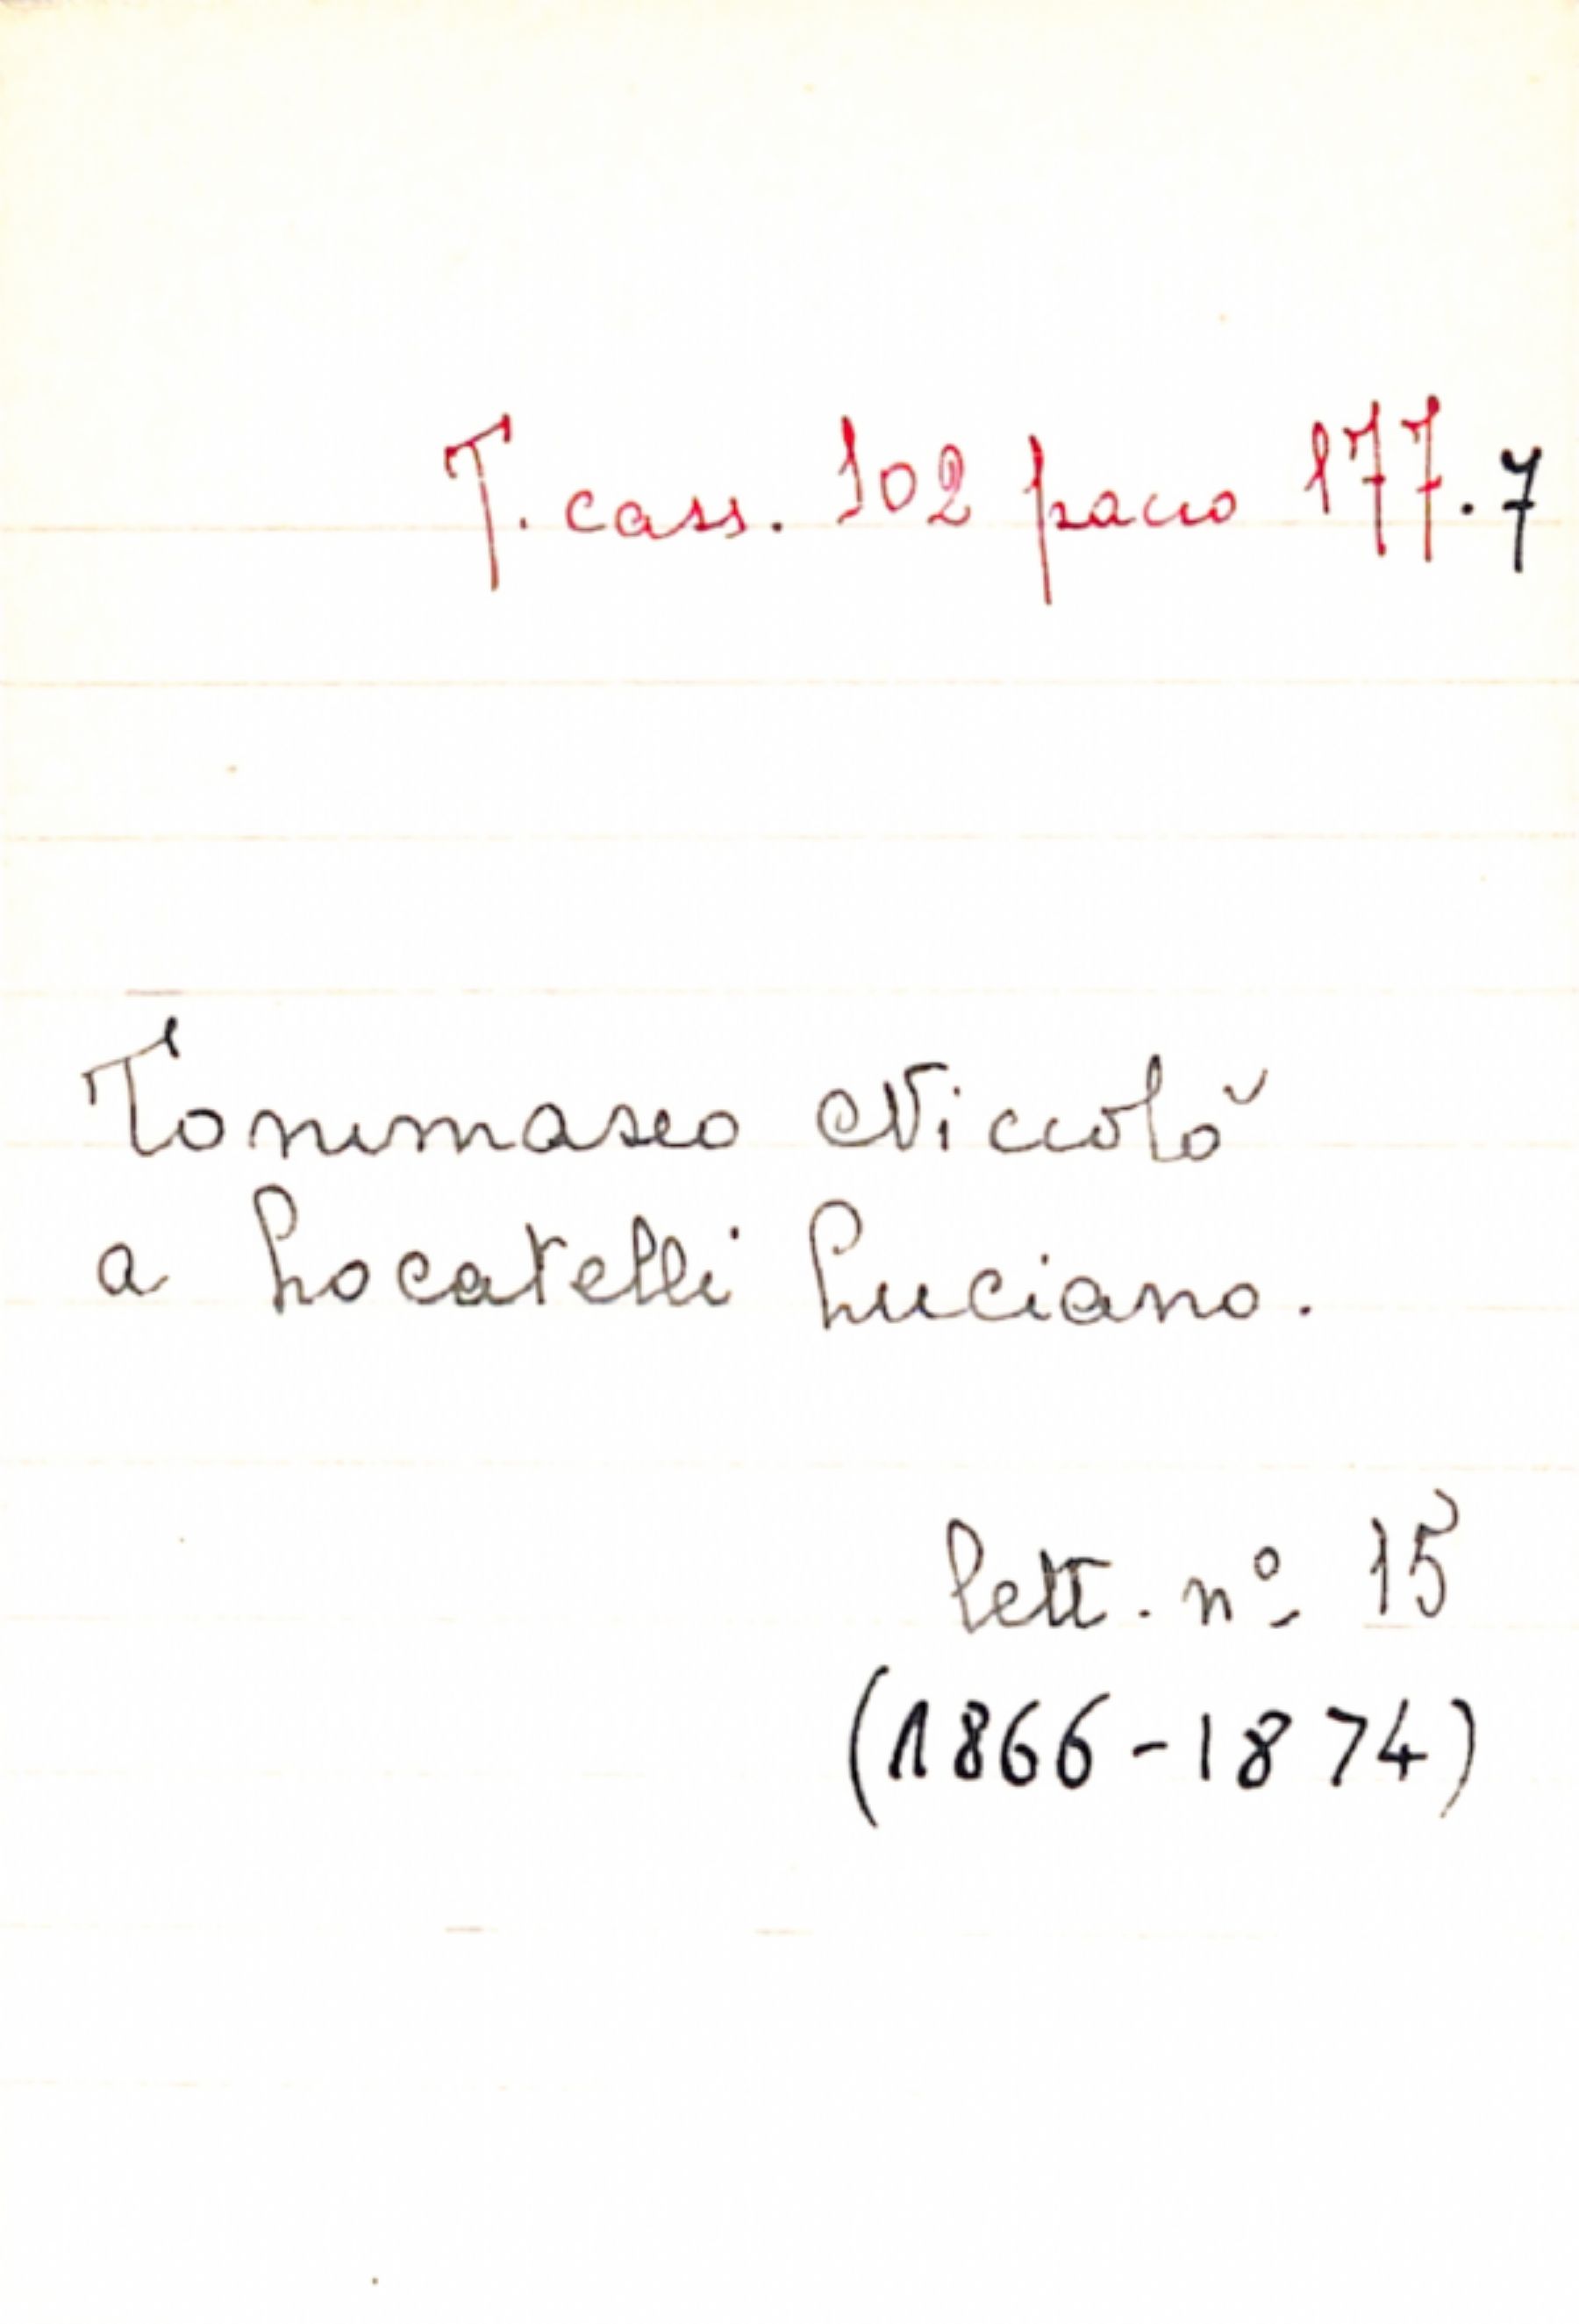 T. cass. 102 pacco 177.7
Tommaseo Niccolò
a Locatelli Luciano.
lett. nº 15
(1866-1874)